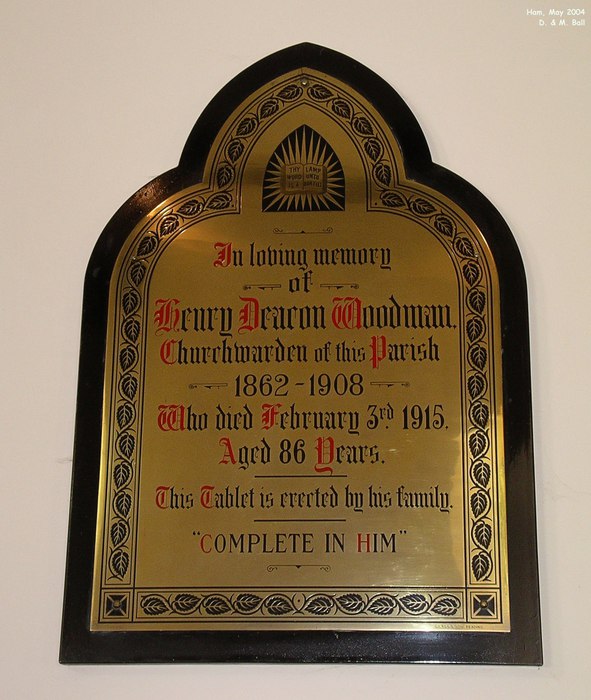 Ham, May 2004
D. & M. Ball
THY LAMP
WORD UNTO
IS A
In loving memory
of
Henry Deacon Woodman.
Churchwarden of this Parish
1862-1908
Who died February 3rd. 1915.
Aged 86 Years.
This Tablet is erected by his family.
"COMPLETE IN HIM"